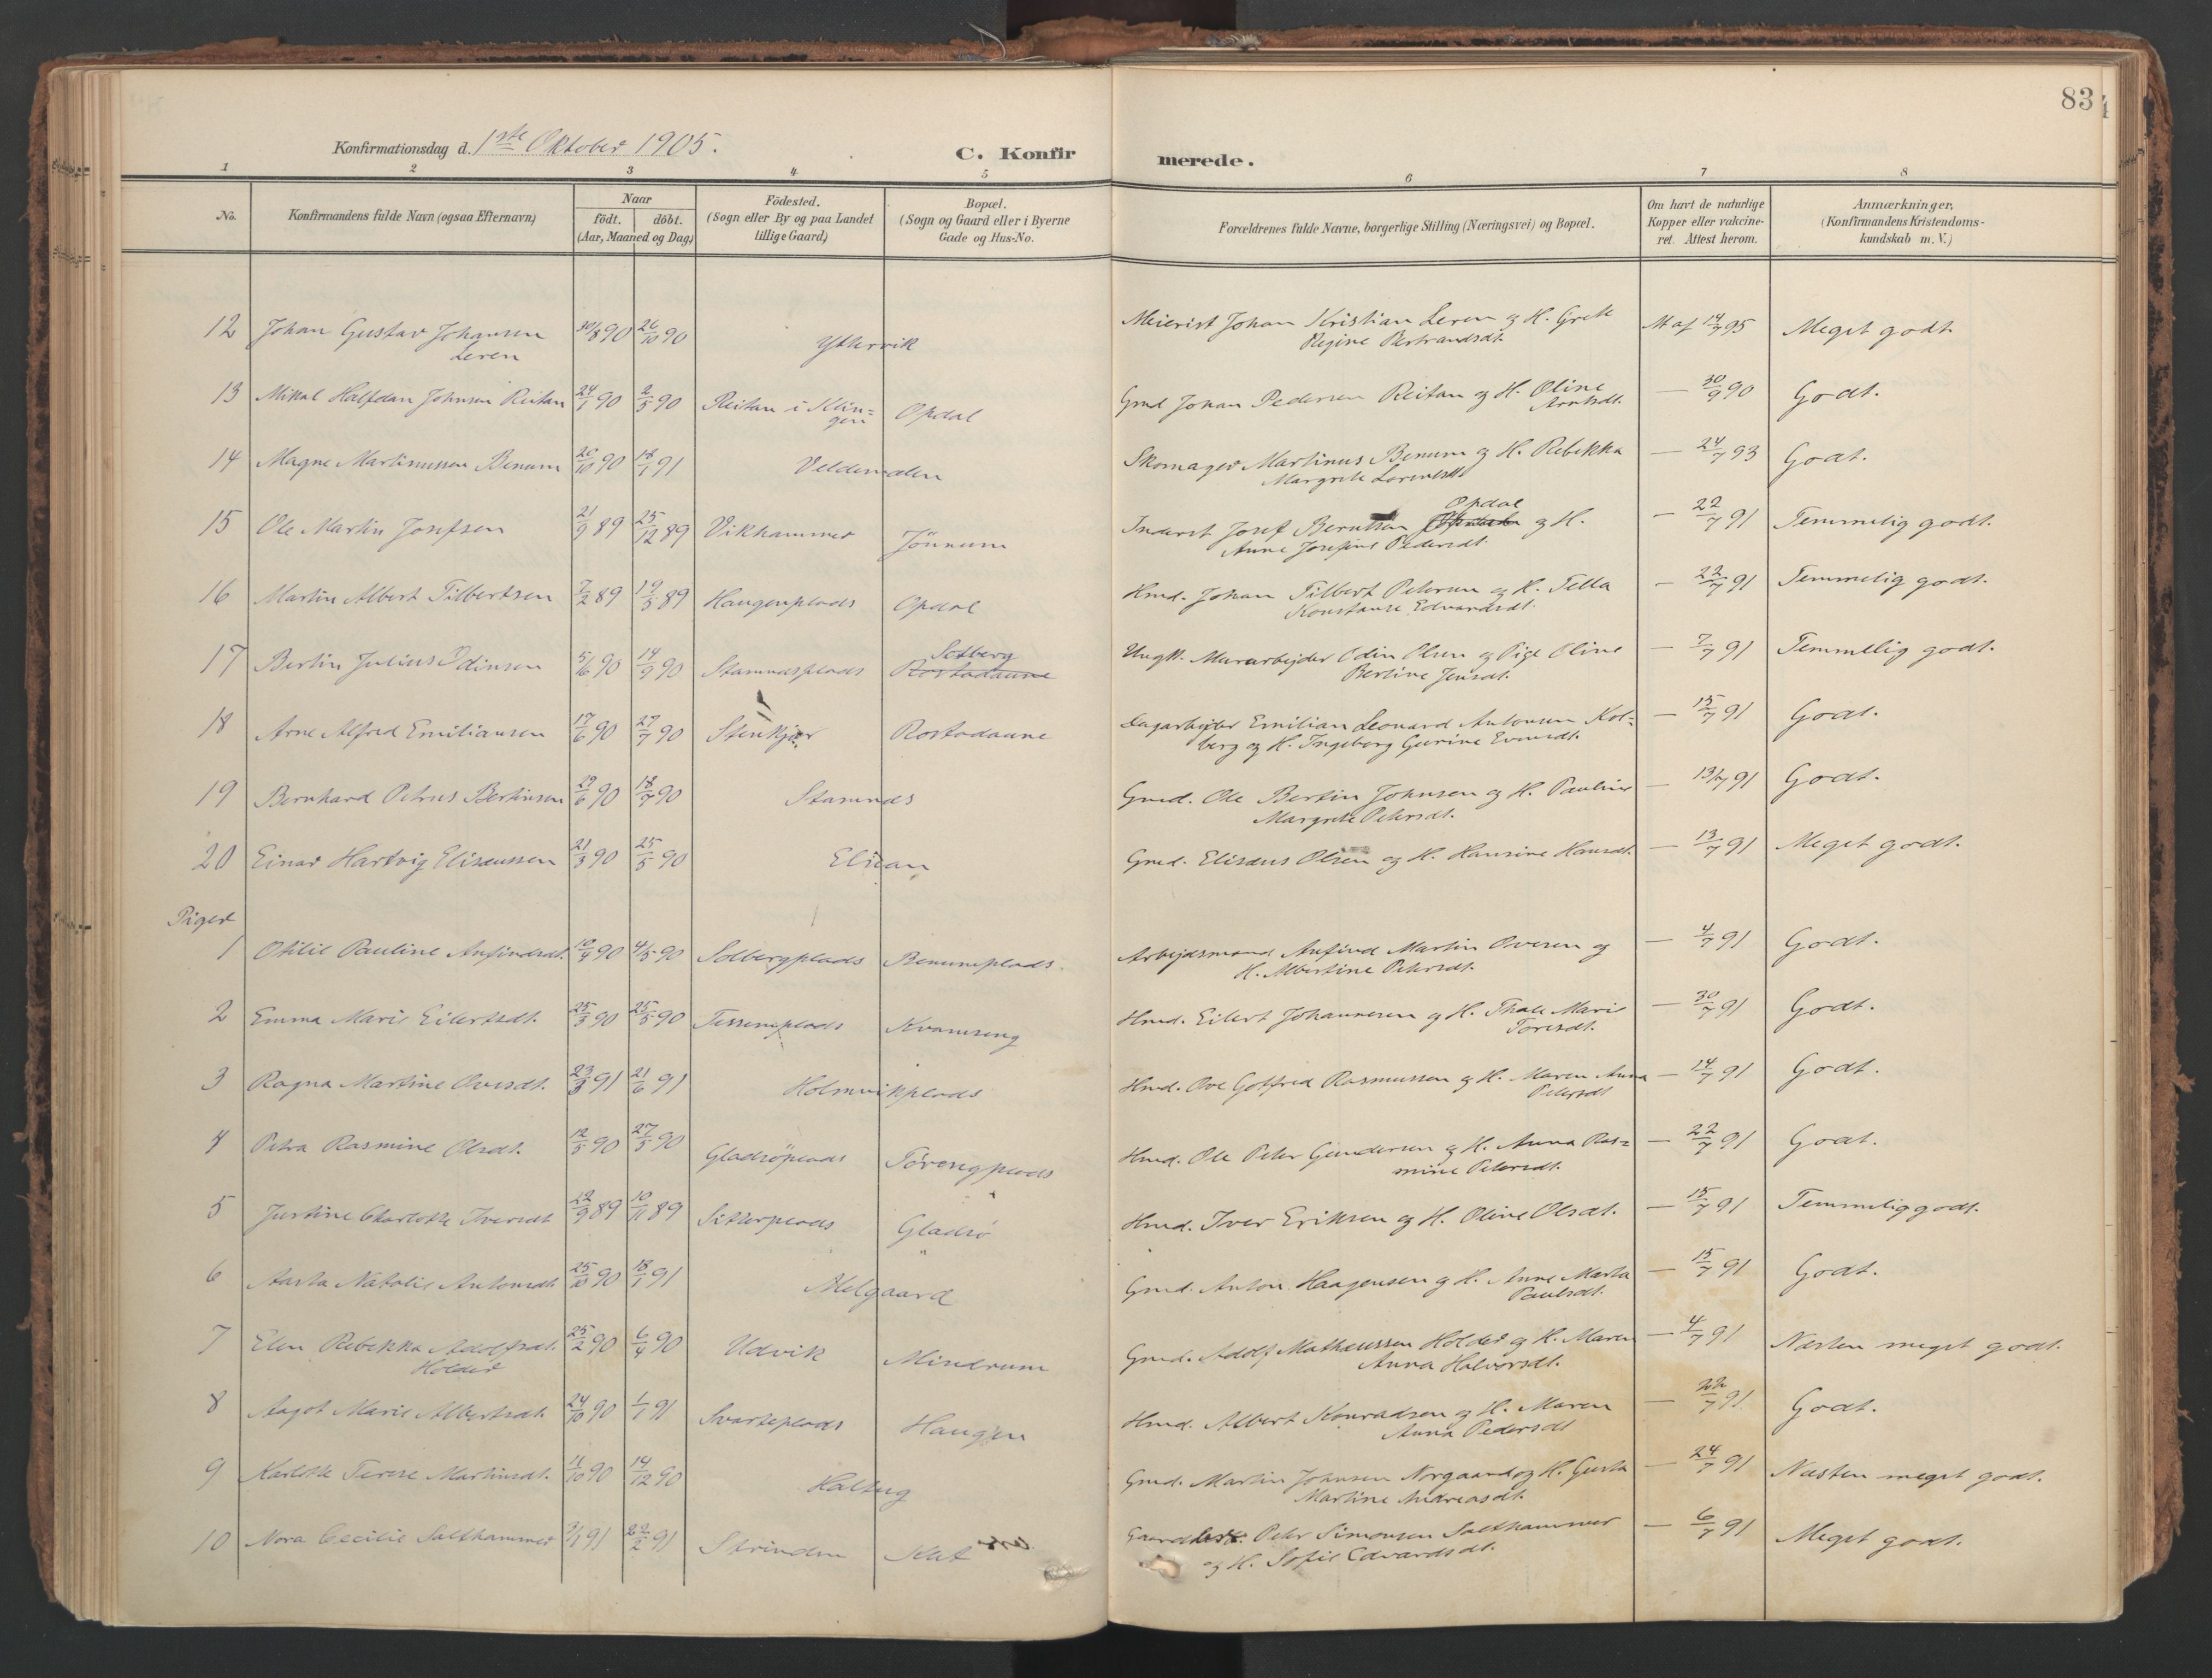 83
Konfirmationsdag d. 1ste Oktober 1905.
C. Konfirmerede.
1 2 3 4 5 6 7 8
No.
Konfirmandens fulde Navn (ogsaa Efternavn)
Naar
födt. döbt.
(Aar, Maaned og Dag)
Födested.
(Sogn eller By og paa Landet
tillige Gaard)
Bopæl.
(Sogn og Gaard eller i Byerne
Gade og Hus-No.
Forældrenes fulde Navne, borgerlige Stilling (Næringsvei) og Bopæl.
Om havt de naturlige
Kopper eller vakcine-
ret. Attest herom.
Anmærkninger,
(Konfirmandens Kristendoms-
kundskab m. V.)
12 Johan Gustav Johansen 30/8 90 26/10 90 Yttervik Meierist Johan Kristian Leren og H. Grete At af 14/7 95 Meget godt
Leren Regine Bertrandsdt.
13 Mikal Halfdan Johnsen Reitan 24/1 90 2/5 90 Reitan i Klin= Opdal Gmd Johan Pedersen Reitan og H. Oline — 30/9 90 Godt.
gen Arntsdt.
14 Magne Martinussen Benum 20/10 90 18/1 91 Veldemelen Skomager Martinus Benum og H. Rebekka — 24/7 93 Godt.
Margrete Lorentsdt
15 Ole Martin Josefsen 21/9 89 25/12 89 Vikhammer Jönnum Inderst Josef Berntsen Opdal og H. — 22/7 91 Temmelig godt.
Anne Josefine Pedersdt.
16 Martin Albert Tilbertsen 7/2 89 19/5 89 Haugenplads Opdal Hmd. Johan Tilbert Petersen og H. Tella — 22/7 91 Temmelig godt.
Konstanse Edvardsdt.
17 Bertin Julius Odinsen 5/6 90 14/9 90 Stamnesplads Solberg Rostadaune Ungk. Murarbejder Odin Olsen og Pige Oline — 7/7 91 Temmelig godt.
Bertine Jensdt.
18 Arne Alfred Emiliansen 17/6 90 27/7 90 Stenkjær Rostadaune Dagarbejder Emilian Leonard Antonsen Kol= — 15/7 91 Godt.
berg og H. Ingeborg Gurine Evensdt.
19 Bernhard Petrus Bertinsen 29/6 90 18/7 90 Stamnes Gmd. Ole Bertin Johnsen og H. Pauline — 13/7 91 Godt.
Margrete Petersdt.
20 Einar Hartvig Elisæussen 21/3 90 25/5 90 Elnan Gmd. Elisæus Olsen og H. Hansine Hansdt. — 13/7 91 Meget godt.
Piger
1 Otilie Pauline Anfindsdt. 10/4 90 4/5 90 Solbergplads Benumplads. Arbejdsmand Anfind Martin Ovesen og — 4/7 91 Godt.
H. Albertine Petersdt.
2 Emma Marie Eilertsdt. 25/3 90 25/5 90 Tessemplads Kvamseng Hmd. Eilert Johannesen og H. Thale Marie — 30/7 91 Godt.
Toresdt.
3 Ragna Martine Ovesdt. 23/3 91 21/6 91 Holmvikplads Hmd. Ove Gotfred Rasmussen og H. Maren Anna — 14/7 91 Godt.
Petersdt
4 Petra Rasmine Olsdt. 12/5 90 27/5 90 Gladsöplads Töringplads Hmd. Ole Peter Gundersen og H. Anna Ras= — 22/7 91 Godt.
mine Petersdt.
5 Justine Charlotte Iversdt 22/9 89 10/11 89 Sitterplads Gladsö Hmd. Iver Eriksen og H. Oline Olsdt. — 15/7 91 Temmelig godt.
6 Aasta Natalie Antonsdt. 25/10 90 18/1 91 Melgaard Gmd. Anton Haagensen og H. Anne Marta — 15/7 91 Godt.
Paulsdt.
7 Elen Rebekka Adolfsdt. 25/2 90 6/4 90 Udvik Mindrum Gmd. Adolf Matheussen Holder og H. Maren — 4/7 91 Næsten meget godt.
Holder Anna Halvorsdt.
8 Aagot Marie Albertsdt. 24/10 90 1/1 91 Svarteplads Haugen Hmd. Albert Konradsen og H. Maren — 22/7 91 Godt.
Anna Pedersdt
9 Karlotte Terese Martinsdt. 11/10 90 14/12 90 Haltug Gmd. Martin Johnsen Norgaard og H. Gusta — 24/7 91 Næsten meget godt.
Martine Andreasdt.
10 Nora Cecilie Salthammer 3/1 91 22/2 91 Strinden Peter Simonsen Salthammer — 6/7 91 Meget godt.
og H. Sofie Edvardsdt.